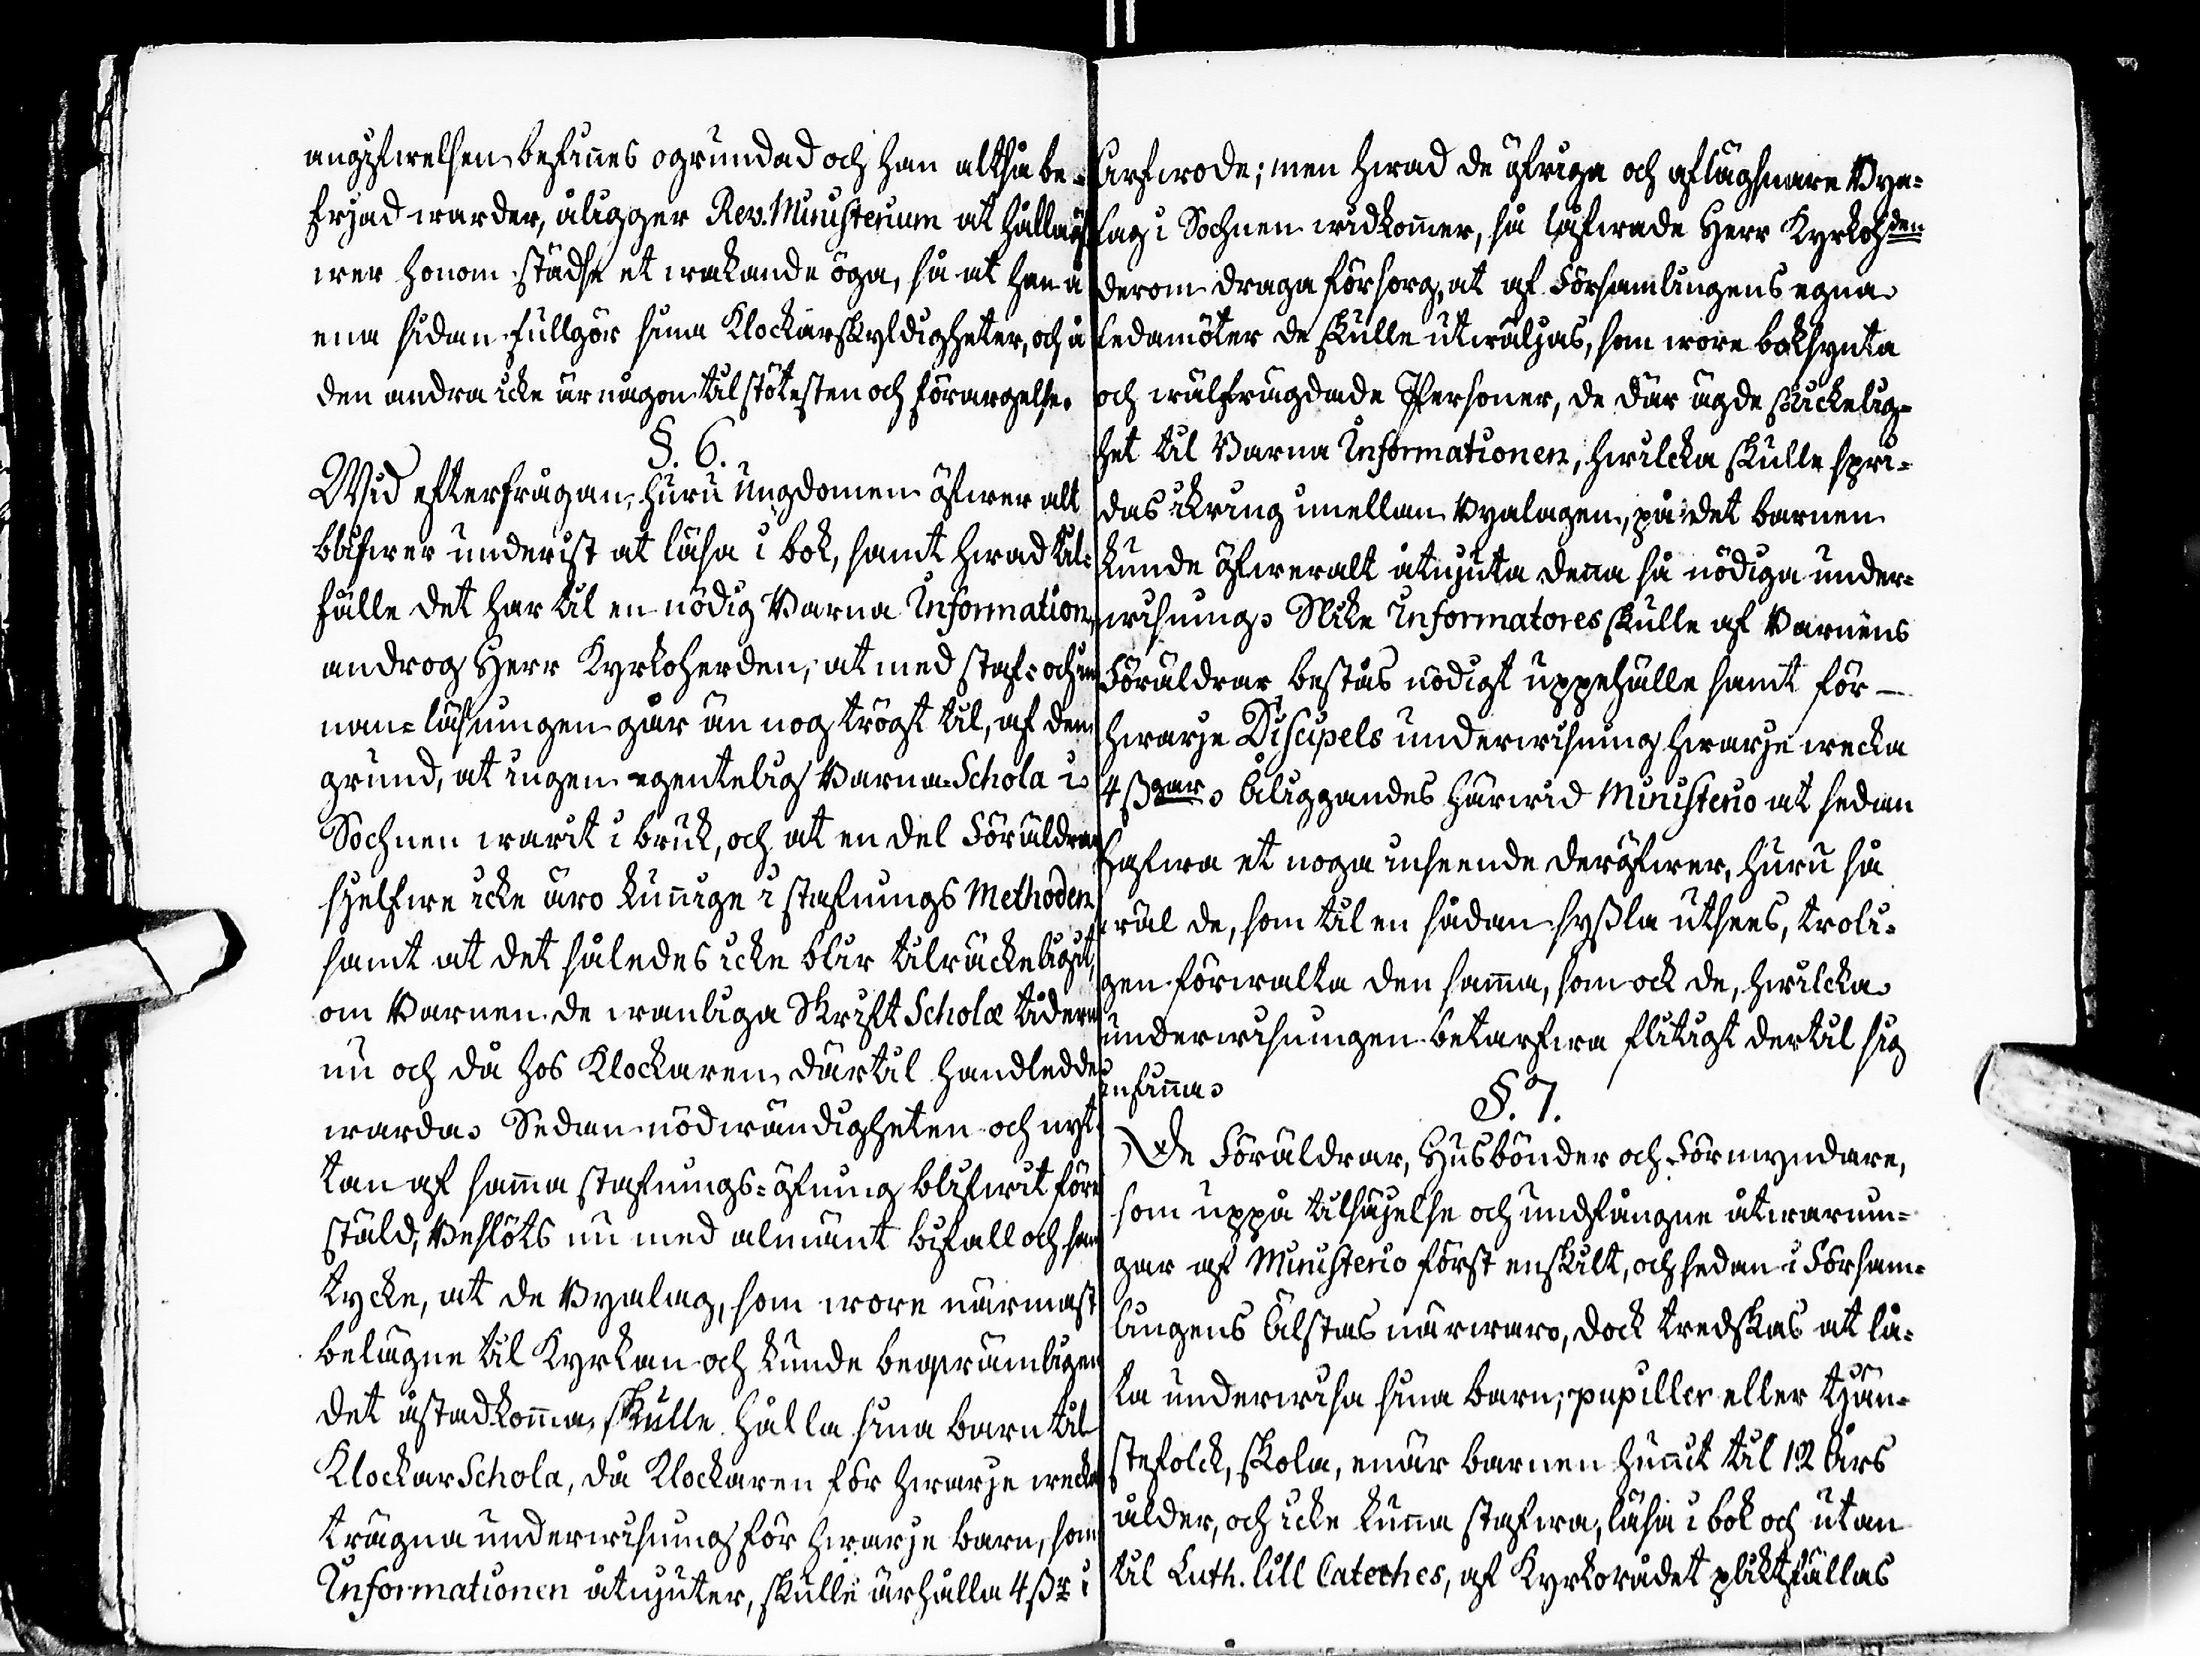 angifwelsen befinnes ogrundad och han altså be-
friad warder, åligger Rev. Ministerium at hålla öf
wer honom städse et wakande öga, så at han å
ena sidan fullgör sina Klockarskyldigheter, och å
den andra icke är någon til stötesten och förargelse.
§. 6.
Wid efterfrågan, huru Ungdomen öfwer alt
blifwer underwist at läsa i bok, samt hwad til-
fälle det har til en nödig Barna Information,
androg Herr Kyrkoherden, at med staf- och in
nan-läsningen går än nog trögt til, af den
grund, at ingen egentelig Barna-Schola i
Sochnen warit i bruk, och at en del Föräldrar
sjelfwe icke äro kunnige i stafnings Methoden
samt at det således icke blir tilräckeligit,
om Barnen de wanliga Skrift Scholæ tiderna
nu och då hos Klockaren därtil handledde
warda. Sedan nödwändigheten och nyt-
tan af samma stafnings-öfning blifwit före
stäld, Beslöts nu med almänt bifall och sam
tycke, at de Byalag, som wore närmast
belägne til Kyrkan och kunde beqwämligen
det åstadkomma, skulle hålla sina barn til
Klockar Schola, då Klockaren för hwarje wecka
trägna underwisning för hwarje barn, som
Informationen åtnjuter, skulle ärhålla 4 ßr i
arfwode; men hwad de öfriga och aflägsnare Bya-
lag i Sochnen widkommer, så låfwade Herr Kyrkohden
derom draga försorg, at af Församlingens egna
Ledamöter de skulle utwäljas, som wore boksynta
och wälfrägdade Personer, de där ägde skickelig-
het til Barna Informationen, hwilcka skulle spri-
das ikring imellan Byalagen, på det barnen
kunde öfweralt åtnjuta denna så nödiga under-
wisning. Slike Informatores skulle af Barnens
Föräldrar bestås nödigt uppehälle samt för
hwarje Discipels underwisning hwarje wecka
4 ßgar. Åliggandes härwid Ministerio at sedan
hafwa et noga inseende deröfwer, huru så
wäl de, som til en sådan syßla utsees, troli-
gen förwalta den samma, som ock de, hwilcka
underwisningen betarfwa flitigt dertil sig
infinna.
§. 7.
De Föräldrar, Husbönder och Förmyndare,
som uppå tilsäjelse och undfångne åtwarnin-
gar af Ministerio först enskilt, och sedan i Försam-
lingens Älstas närwaro, dock tredskas at lå-
ta underwisa sina barn, pupiller eller tjän-
stefolck, skola, enär barnen hunnit til 12 Års
ålder, och icke kunna stafwa, läsa i bok och utan
til Luth. lill Cateches, af Kyrkorådet pliktfällas